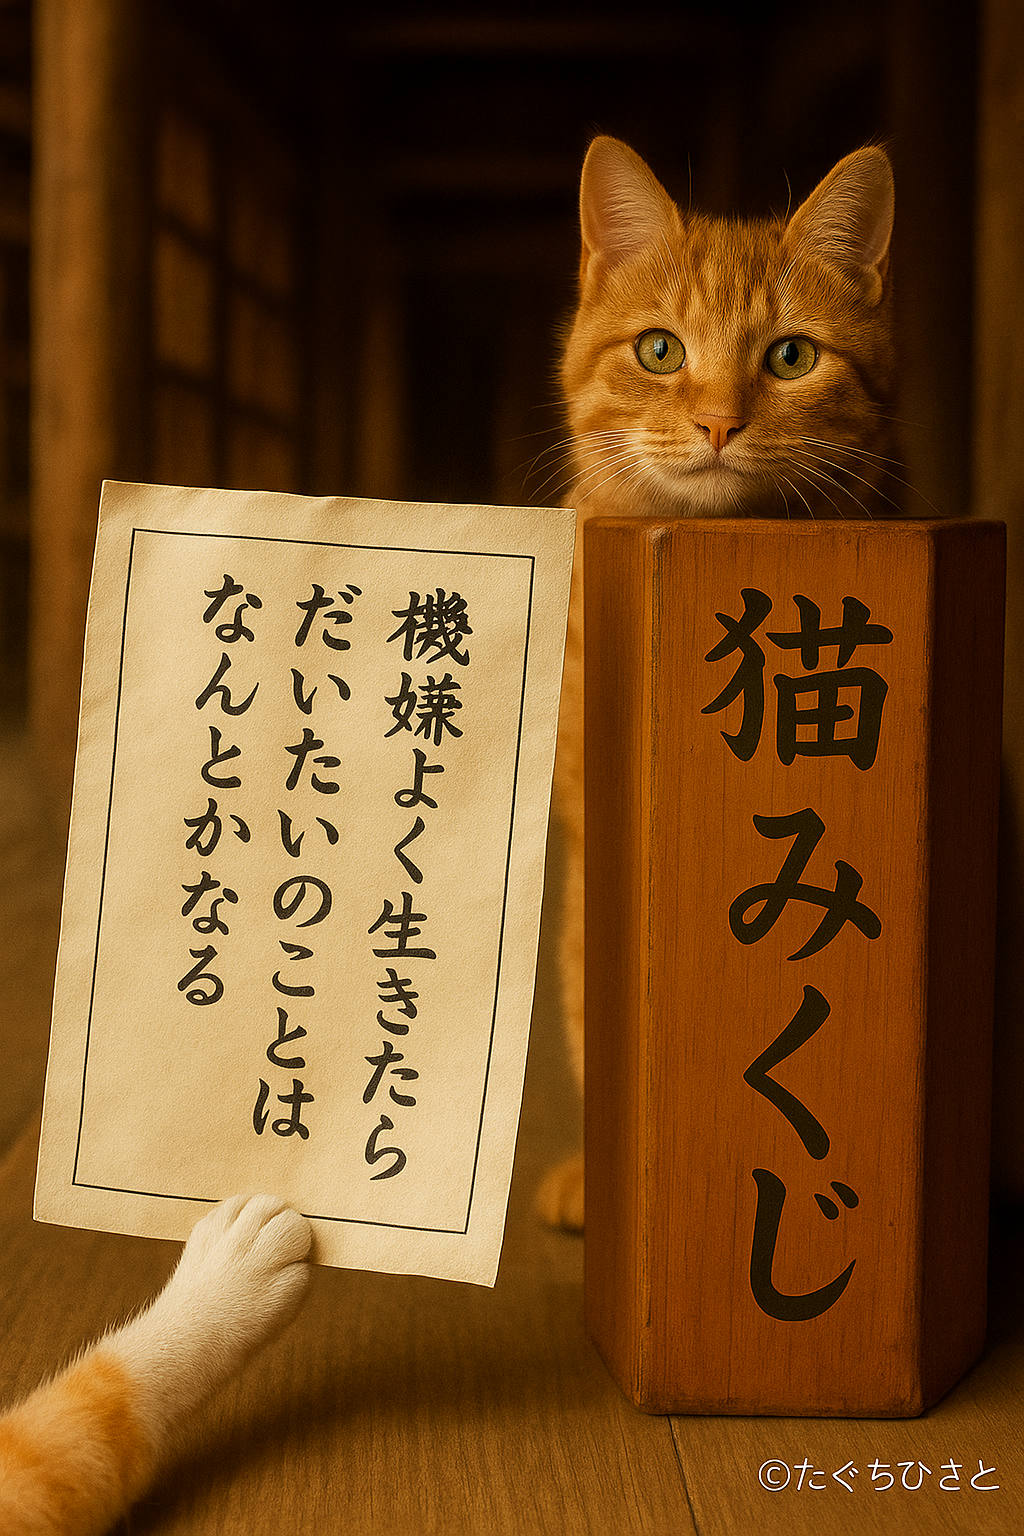 機嫌よく生きたら
だいたいのことは
なんとかなる
猫みくじ
©たぐちひさと